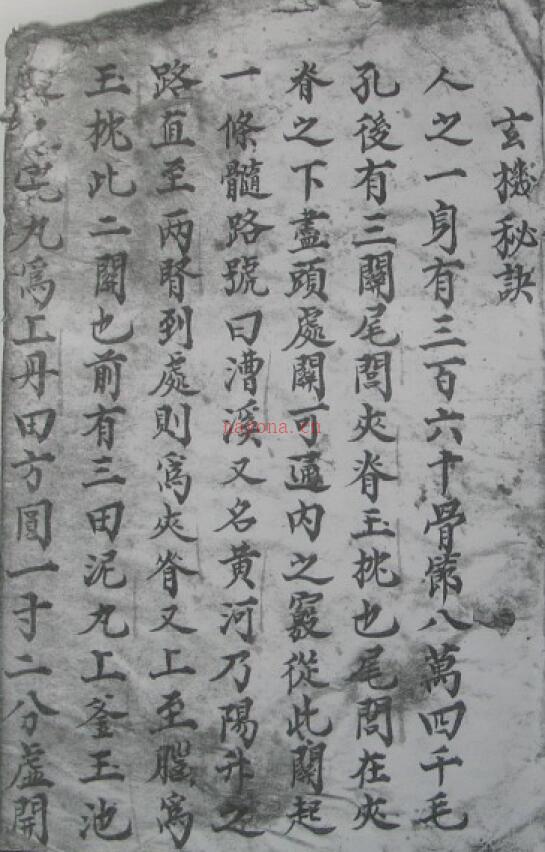 玄機秘訣
人之一身有三百六十骨節八萬四千毛
孔後有三關尾閭夾脊玉枕也尾閭在夾
脊之下盡頭處關可通內之竅從此關起
一條髓路號曰漕溪又名黃河乃陽升之
路直至兩腎到處則爲夾脊又上至腦爲
玉枕此二關也前有三田泥丸上釜玉池
丸爲上丹田方圓一寸二分虛開
nayona.cn